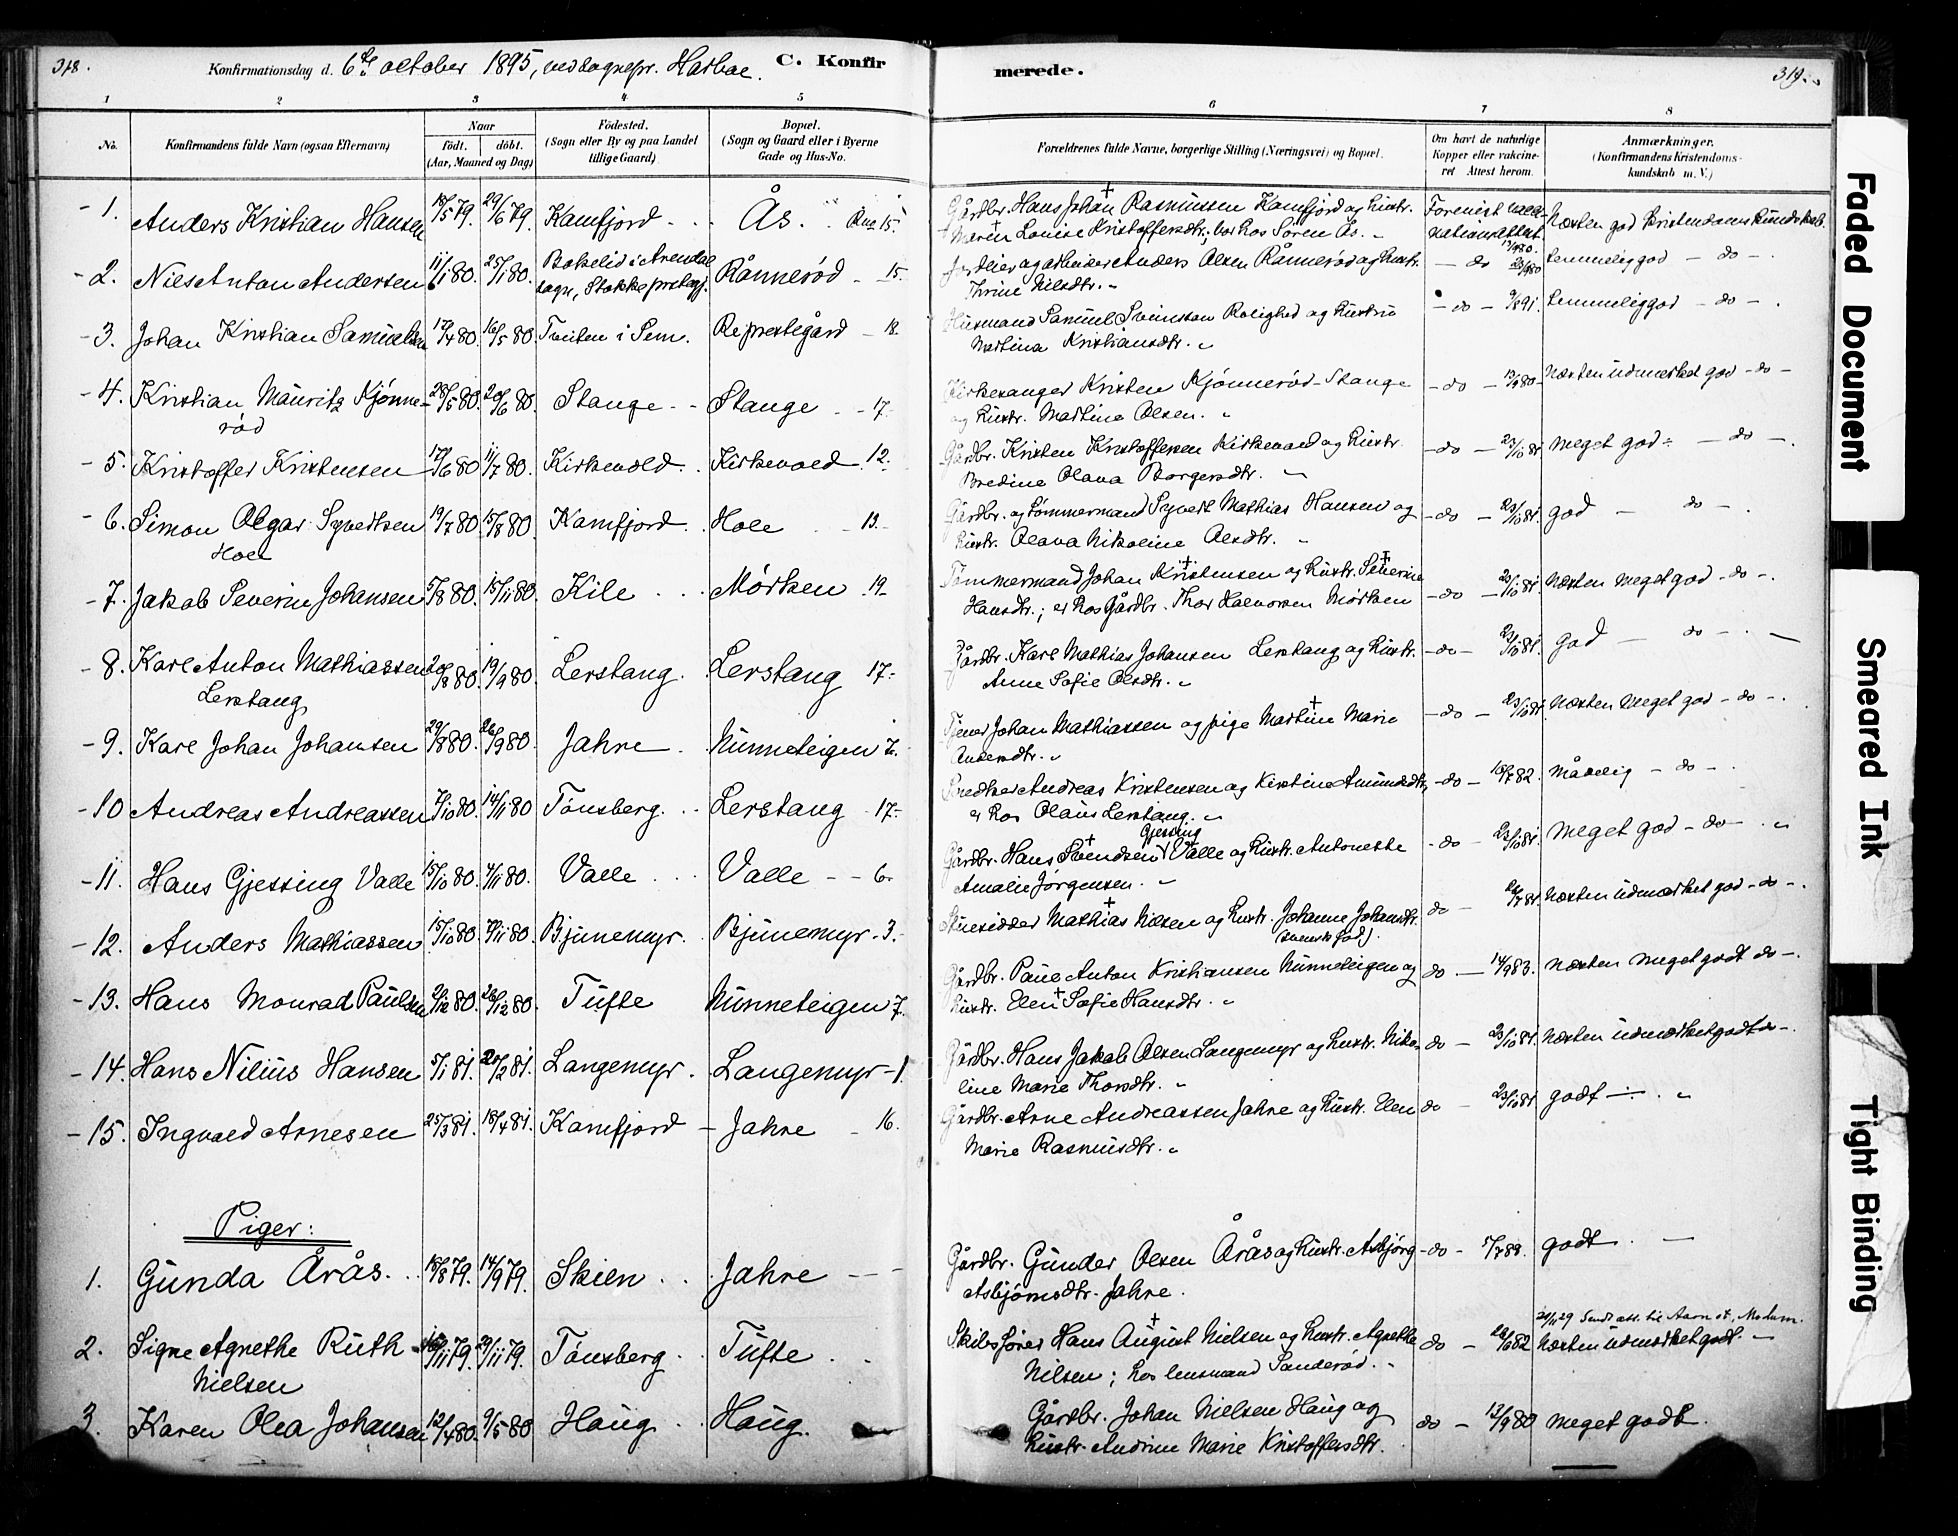 318.
Konfirmationsdag d. 6te october 1895, ved sognepr. Harboe. C. Konfirmerede.
319.
1 2 3 4 5 6 7 8
No.
Konfirmandens fulde Navn (ogsaa Efternavn)
Naar
født. døbt.
(Aar, Maaned og Dag)
Fødested.
(Sogn eller By og paa Landet
tillige Gaard).
Bopæl.
(Sogn og Gaard eller i Byerne
Gade og Hus-No.
Forældrenes fulde Navne, borgerlige Stilling (Næringsvei) og Bopæl.
Om havt de naturlige
Kopper eller vakcine-
ret Attest herom.
Anmærkninger.
(Konfirmandens Kristendoms-
kundskab m. V.)
1. Anders Kristian Hansen 18/5 79. 29/6 79. Kamfjord Ås. 15.
Gårdbr. Hans Johan Rasmussen Kamfjord og hustr.
Maren Louise Kristoffersdtr.; bor hos Søren Ås.
Næsten god Kristendomskundskab.
2. Nils Anton Andersen 11/1 80. 25/1 80. Bokelid i Arendal sogn, Stokke prstegj. Rånnerød 15.
og arbeider Anders Olsen Rånnerød og hustr.
Thrine Nilsdtr.
do Temmelig god do
3. Johan Kristian Samuelsen 17/4 80. 16/5 80. i Sem. Re prestegård 18.
Husmand Samuel Svensson Rolighed og hustru
Martina Kristiansdtr.
do 9/6 91. Temmelig god do
4. Kristian Mauritz Kjønne-
rød 28/5 80. 20/6 80. Stange Stange 17.
Kirkesanger Kristen Kjønnerød-Stange
og hustr. Martine Olsen.
do 13/9 80 Næsten udmærket god do
5. Kristoffer Kristensen 17/6 80. 11/7 80. Kirkevold Kirkevold 12.
Gårdbr. Kristen Kristoffersen Kirkevold og hustr.
Bredine Olava Borgersdtr.
do 23/10 81. meget god do
6. Simon Olgar Syvertsen
Hole 19/7 80. 15/8 80. Kamfjord. Hole 13.
Gårdbr. og tømmermand Syvert Mathias Hansen og
hustr. Olava Nikoline Olsdtr.
do 23/10 81. god do
7. Jakob Severin Johansen 5/8 80. 15/11 80. Kile Mørken 19
Tømmermand Johan Kristensen og hustr. Severine
Hansdtr.; er hos Gårdbr. Thor Halvorsen Mørken
do 23/10 81. næsten meget god do
8. Karl Anton Mathiassen
Lerstang 20/8 80. 19/9 80. Lerstang. Lerstang 17.
Gårdbr. Karl Mathias Johansen Lerstang og hustr.
Anne Sofie Olsdtr.
do 23/10 81. god do
9. Karl Johan Johansen 29/8 80. 26/9 80. Jahre Nunneteigen 7.
Tjener Johan Mathiassen og pige Martine Marie
Andersdtr.
do 23/10 81. Næsten meget god do
10 Andreas Andreassen 7/10 80. 14/11 80 Tønsberg. Lerstang 17.
Snedker Andreas Kristensen og Kirstine Amundsdtr.
er hos Olaus Lerstang.
do 18/7 82. måtelig do
11. Hans Gjessing Valle 15/10 80. 7/11 80. Valle Valle 6.
Gårdbr. Hans Svendsen Gjessing Valle og hustr. Antonette
Amalie Jørgensen.
do 23/10 81. meget god do
12. Anders Mathiassen 15/10 80. 7/11 80. Bjunemyr. Bjunemyr 3.
Huusidder Mathias Nilsen og hustr. Johanne Johansdtr.
(svensk født).
do Næsten udmærket god do
13. Hans Monrad Paulsen 2/12 80. 26/12 80. Tufte Nunneteigen 7.
Gårdbr. Paul Anton Kristiansen Nunneteigen og
hustr. Elen Sofie Hansdtr.
do 14/9 83. næsten meget godt do
14. Hans Nilius Hansen 5/1 81. 20/2 81. Langemyr. Langemyr 1.
Gårdbr. Hans Jakob Olsen Langemyr og hustr. Niko-
line Marie Thorsdtr.
do 23/10 81. Næsten udmærket godt do
15. Ingvald Arnesen 25/3 81. 18/4 81. Kamfjord Jahre 16.
Gårdbr. Arne Andreassen Jahre og hustr. Elen
Marie Rasmusdtr.
do 23/10 81 godt
Piger:
1. Gunda Årås. 18/8 79. 14/9 79. Skien Jahre
Gårdbr. Gunder Olsen Årås og hustr. Asbjørg
Asbjørnsdtr. Jahre.
do godt
2. Signe Agnethe Ruth
Nielsen 16/11 79. 29/11 79. Tønsberg Tufte
Skibsfører Hans August Nielsen og hustr. Agnethe
Nilsen; hos lensmand Sanderød.
do Næsten udmærket godt.
3. Karen Olea Johansen 12/4 80. 9/5 80 Haug Haug.
Gårdbr. Johan Nielsen Haug og
hustr. Andrine Marie Kristoffersdtr.
do 13/9 80 meget godt.
Faded Document
Smeared Ink
Tight Binding